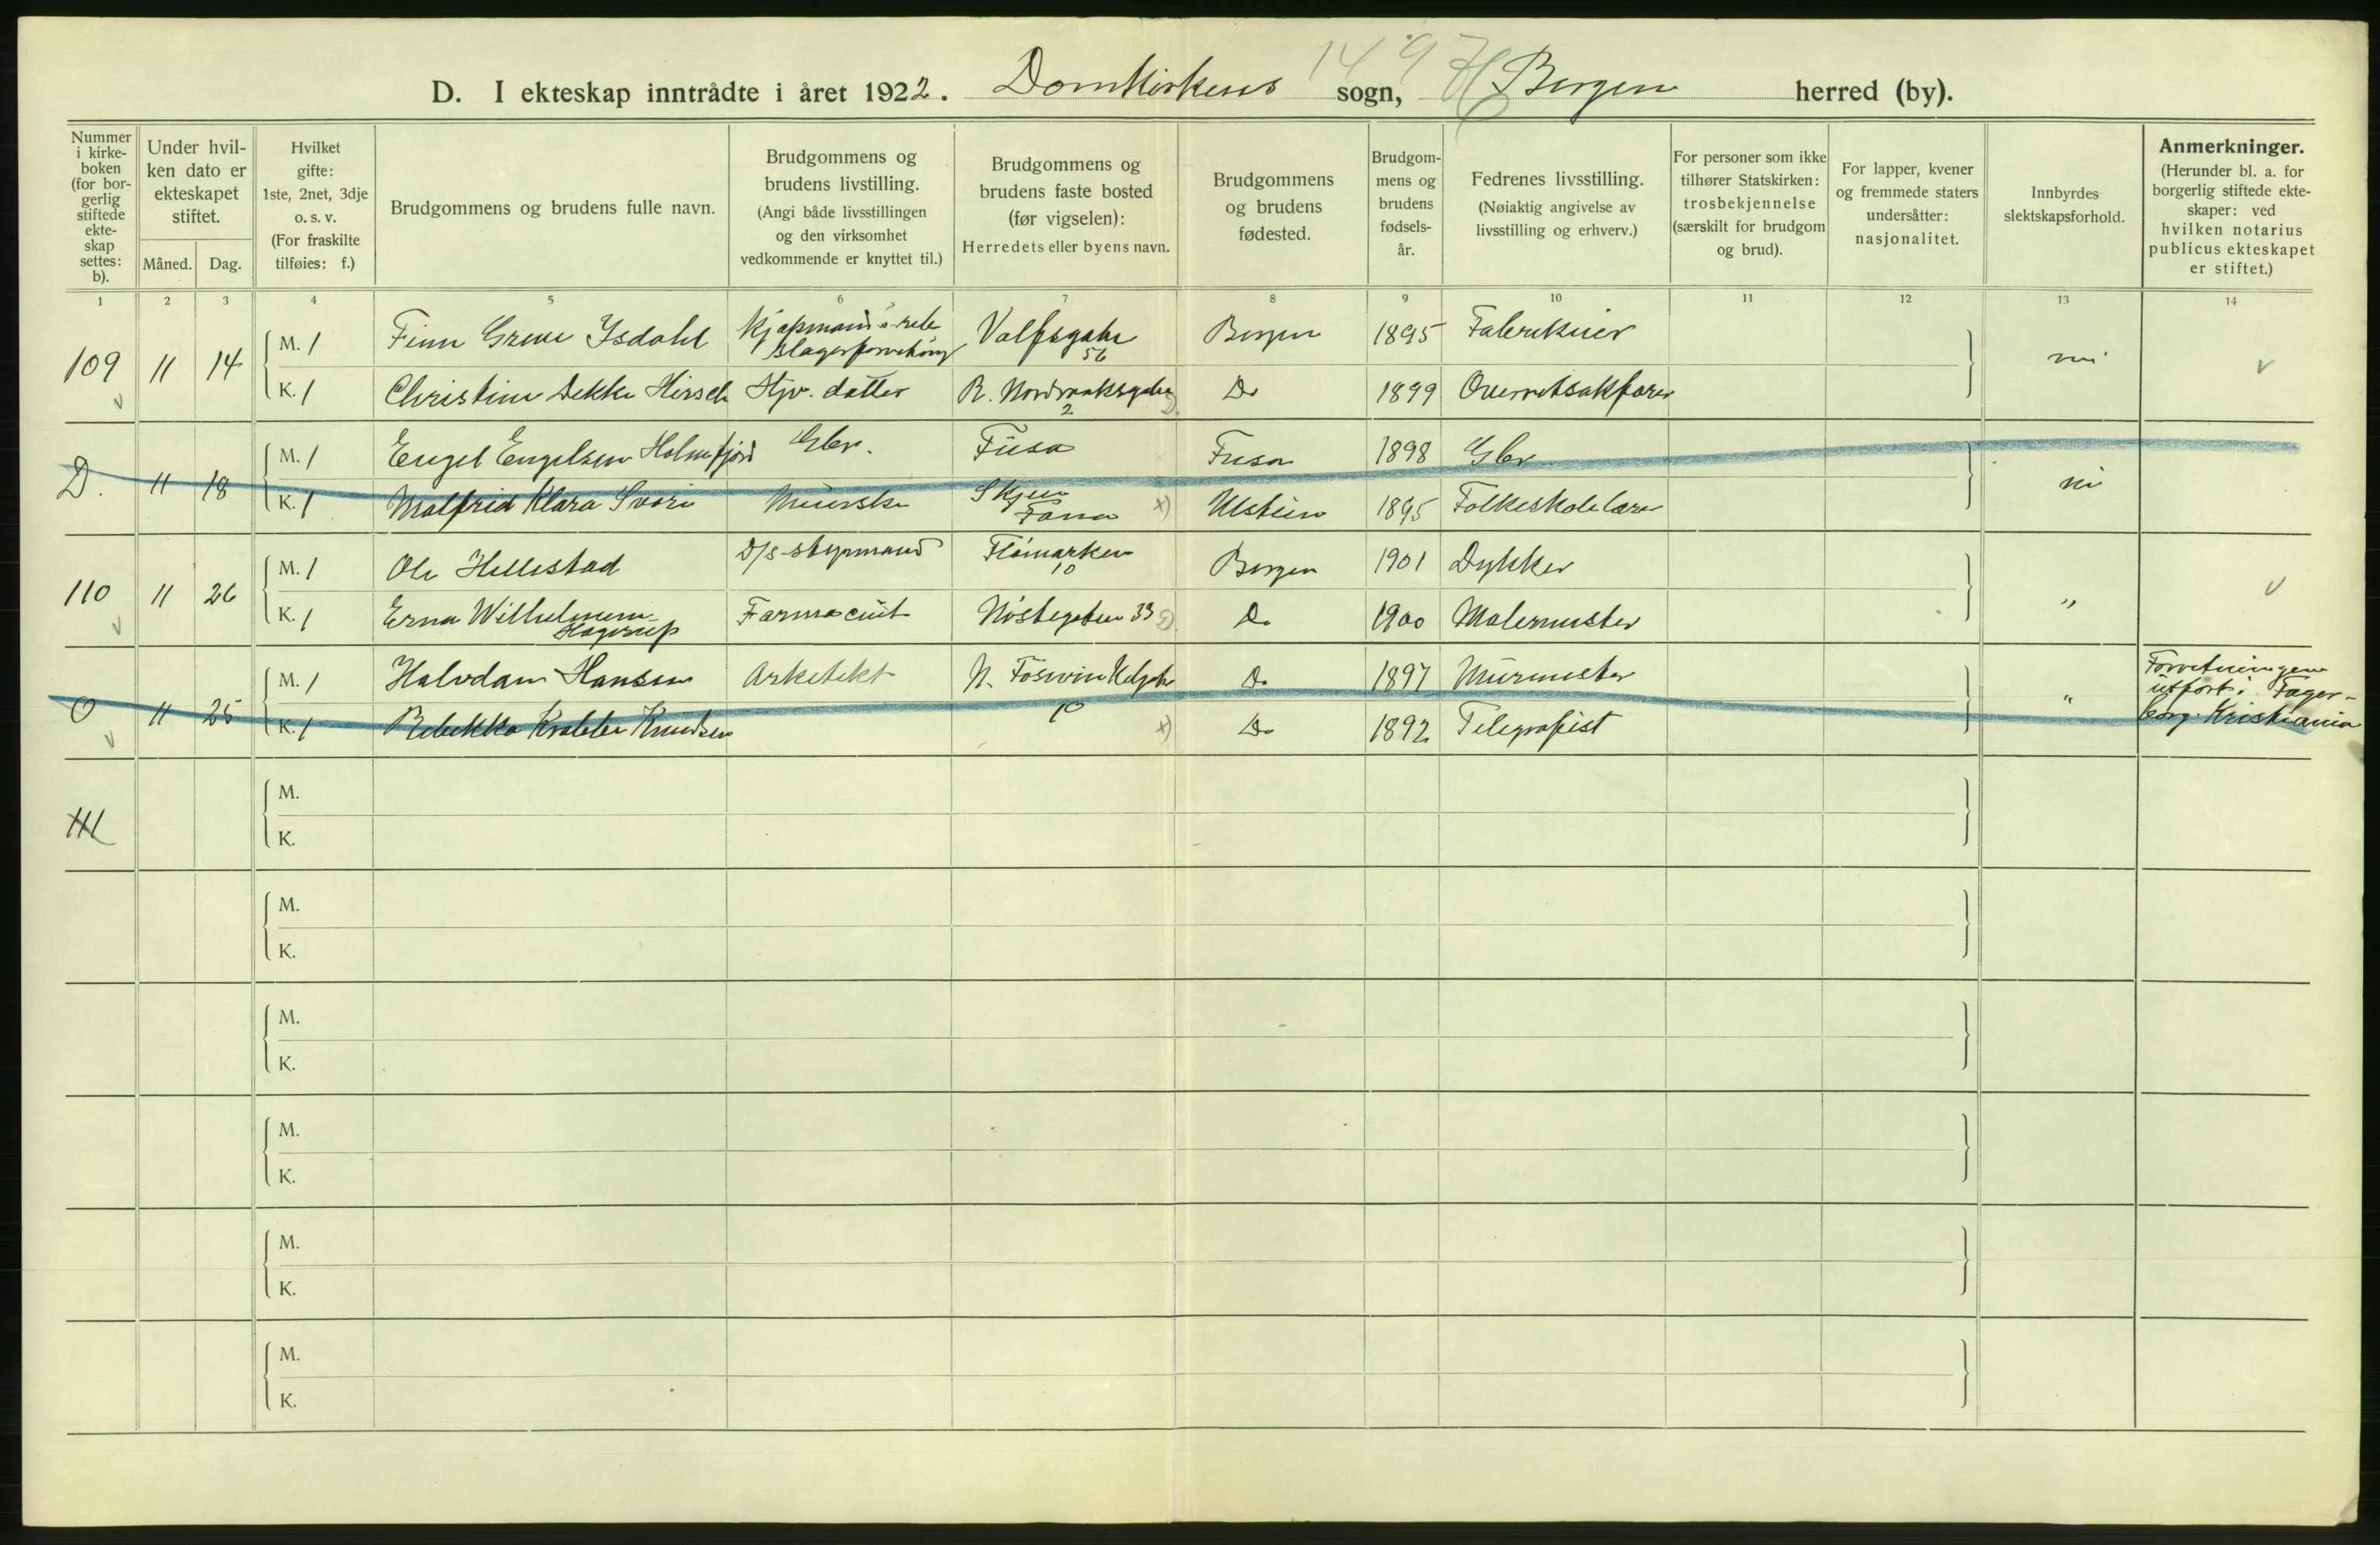 D. I ekteskap inntrådte i året 1922. Domkirkens sogn, Bergen herred (by).
Nummer i kirkeboken (for borgerlig stiftede ekteskap settes: b).
Under hvilken dato er ekteskapet stiftet.
Måned. Dag.
Hvilket gifte: 1ste, 2net, 3dje o. s. v. (For fraskilte tilføies: f.)
Brudgommens og brudens fulle navn.
Brudgommens og brudens livstilling. (Angi både livsstillingen og den virksomhet vedkommende er knyttet til.)
Brudgommens og brudens faste bosted (før vigselen): Herredets eller byens navn.
Brudgommens og brudens fødested.
Brudgommens og brudens fødselsår.
Fedrenes livsstilling. (Nøiaktig angivelse av livsstilling og erhverv.)
For personer som ikke tilhører Statskirken: trosbekjennelse (særskilt for brudgom og brud).
For lapper, kvener og fremmede staters undersåtter: nasjonalitet.
Innbyrdes slektskapsforhold.
Anmerkninger. (Herunder bl. a. for borgerlig stiftede ekteskaper: ved hvilken notarius publicus ekteskapet er stiftet.)
1 2 3 4 5 6 7 8 9 10 11 12 13 14
109 11 14 M. 1 Finn Greve Isdahl Bergen 1895 Fabrikeier
56
K. 1 Christine Dekke Hirsch Hjv. datter R. Nordraaksgaten 2 Do 1899 Overretsakfører
D. 11 18 M. 1 Engel Engelsen Holmefjord Gbr. Fusa Fusa 1898 Gbr
K. 1 Malfrid Klara Fana Ulstein 1895 Folkeskolelærer
110 11 26 M. 1 Ole Hellestad D/s-styrmand Flömarken 10 Bergen 1901 Dykker "
K. 1 Erna Wilhelmine Hagerup Farmaceut Nöstegaten 33 Do 1900 Malermester
O 11 25 M. 1 Halvdan Hansen Arkitekt Do 1897 Murmester " Forretningen utfört i Fagerborg. Kristiania
10
K. 1 Rebekka Krabbe Knudsen Do 1892 Telegrafist
111 M.
K.
M.
K.
M.
K.
M.
K.
M.
K.
M.
K.